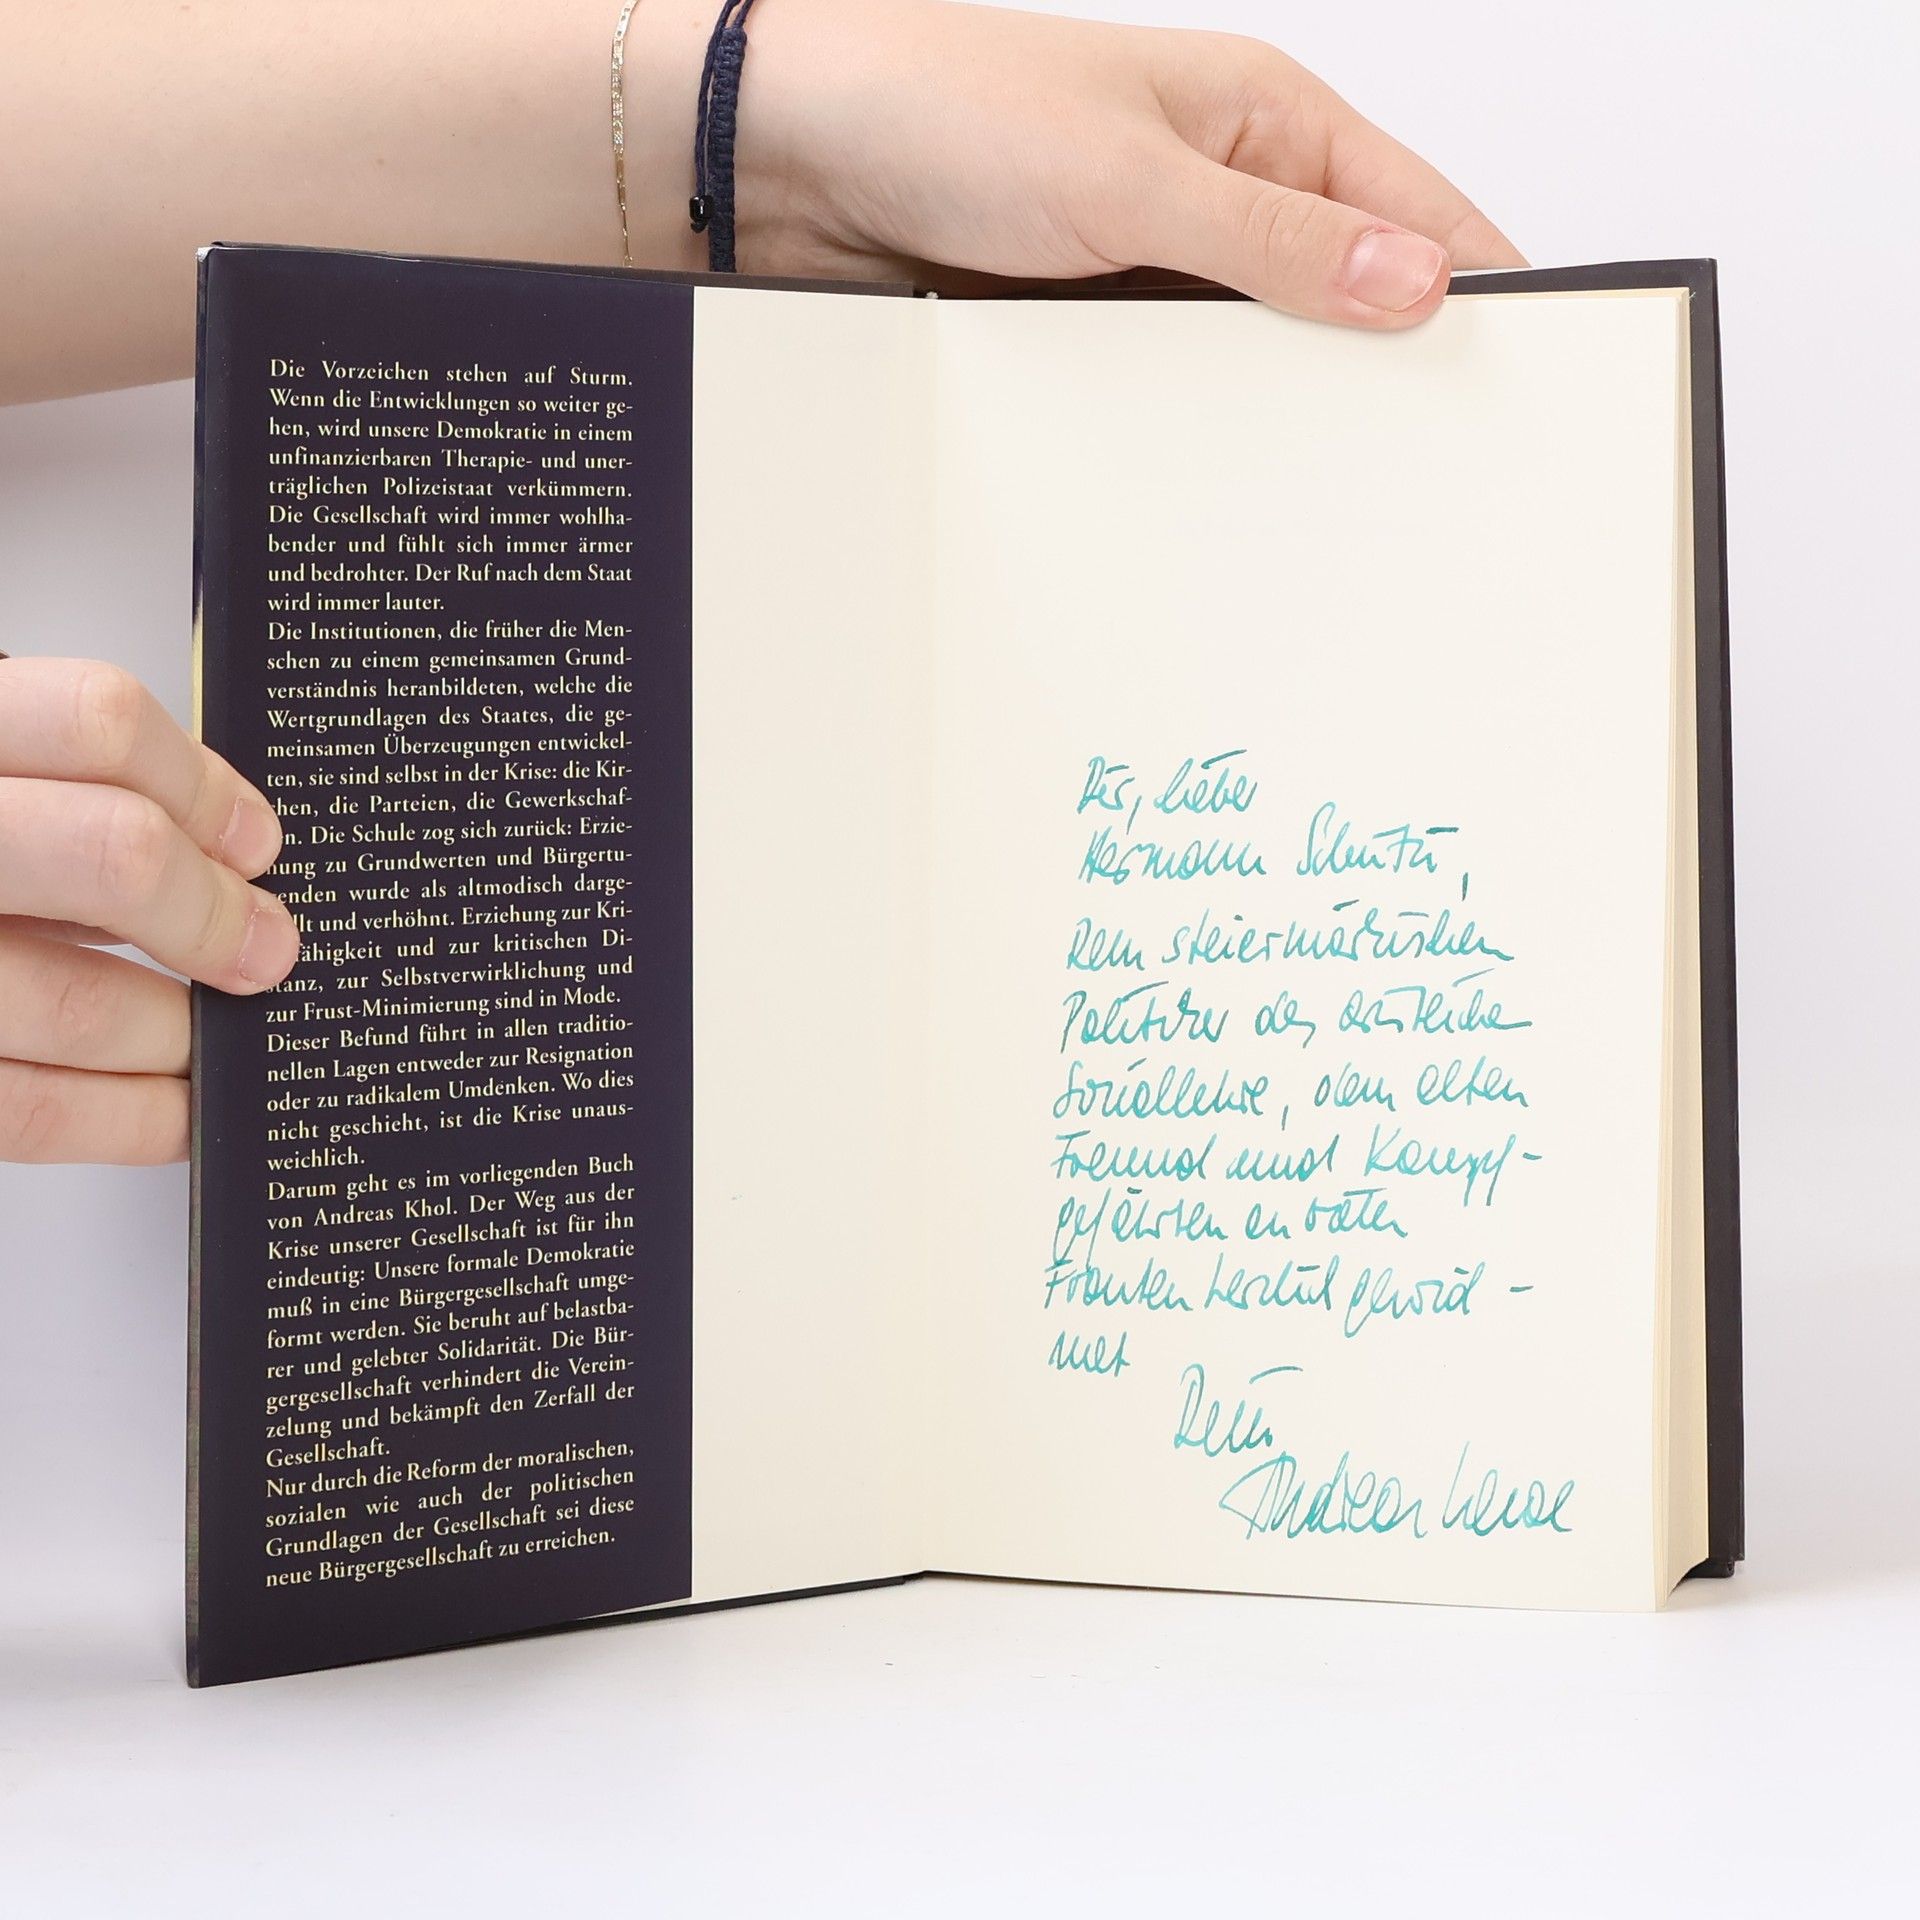 Die Vorzeichen stehen auf Sturm.
Wenn die Entwicklungen so weiter ge-
hen, wird unsere Demokratie in einem
unfinanzierbaren Therapie- und uner-
träglichen Polizeistaat verkümmern.
Die Gesellschaft wird immer wohlha-
bender und fühlt sich immer ärmer
und bedrohter. Der Ruf nach dem Staat
wird immer lauter.
Die Institutionen, die früher die Men-
schen zu einem gemeinsamen Grund-
verständnis heranbildeten, welche die
Wertgrundlagen des Staates, die ge-
meinsamen Überzeugungen entwickel-
ten, sie sind selbst in der Krise: die Kir-
chen, die Parteien, die Gewerkschaf-
n. Die Schule zog sich zurück: Erzie-
hung zu Grundwerten und Bürgertu-
enden wurde als altmodisch darge-
llt und verhöhnt. Erziehung zur Kri-
fähigkeit und zur kritischen Di-
stanz, zur Selbstverwirklichung und
zur Frust-Minimierung sind in Mode.
Dieser Befund führt in allen traditio-
nellen Lagen entweder zur Resignation
oder zu radikalem Umdenken. Wo dies
nicht geschieht, ist die Krise unaus-
weichlich.
Darum geht es im vorliegenden Buch
von Andreas Khol. Der Weg aus der
Krise unserer Gesellschaft ist für ihn
eindeutig: Unsere formale Demokratie
muß in eine Bürgergesellschaft umge-
formt werden. Sie beruht auf belastba-
rer und gelebter Solidarität. Die Bür-
gergesellschaft verhindert die Verein-
zelung und bekämpft den Zerfall der
Gesellschaft.
Nur durch die Reform der moralischen,
sozialen wie auch der politischen
Grundlagen der Gesellschaft sei diese
neue Bürgergesellschaft zu erreichen.
Dir, lieber
Hermann
dem steiermärkischen
Politiker der christlichen
Soziallehre, dem alten
Freund und Kampf-
gefährten an vielen
Fronten herzlich gewid-
met
Dein
Andreas Khol